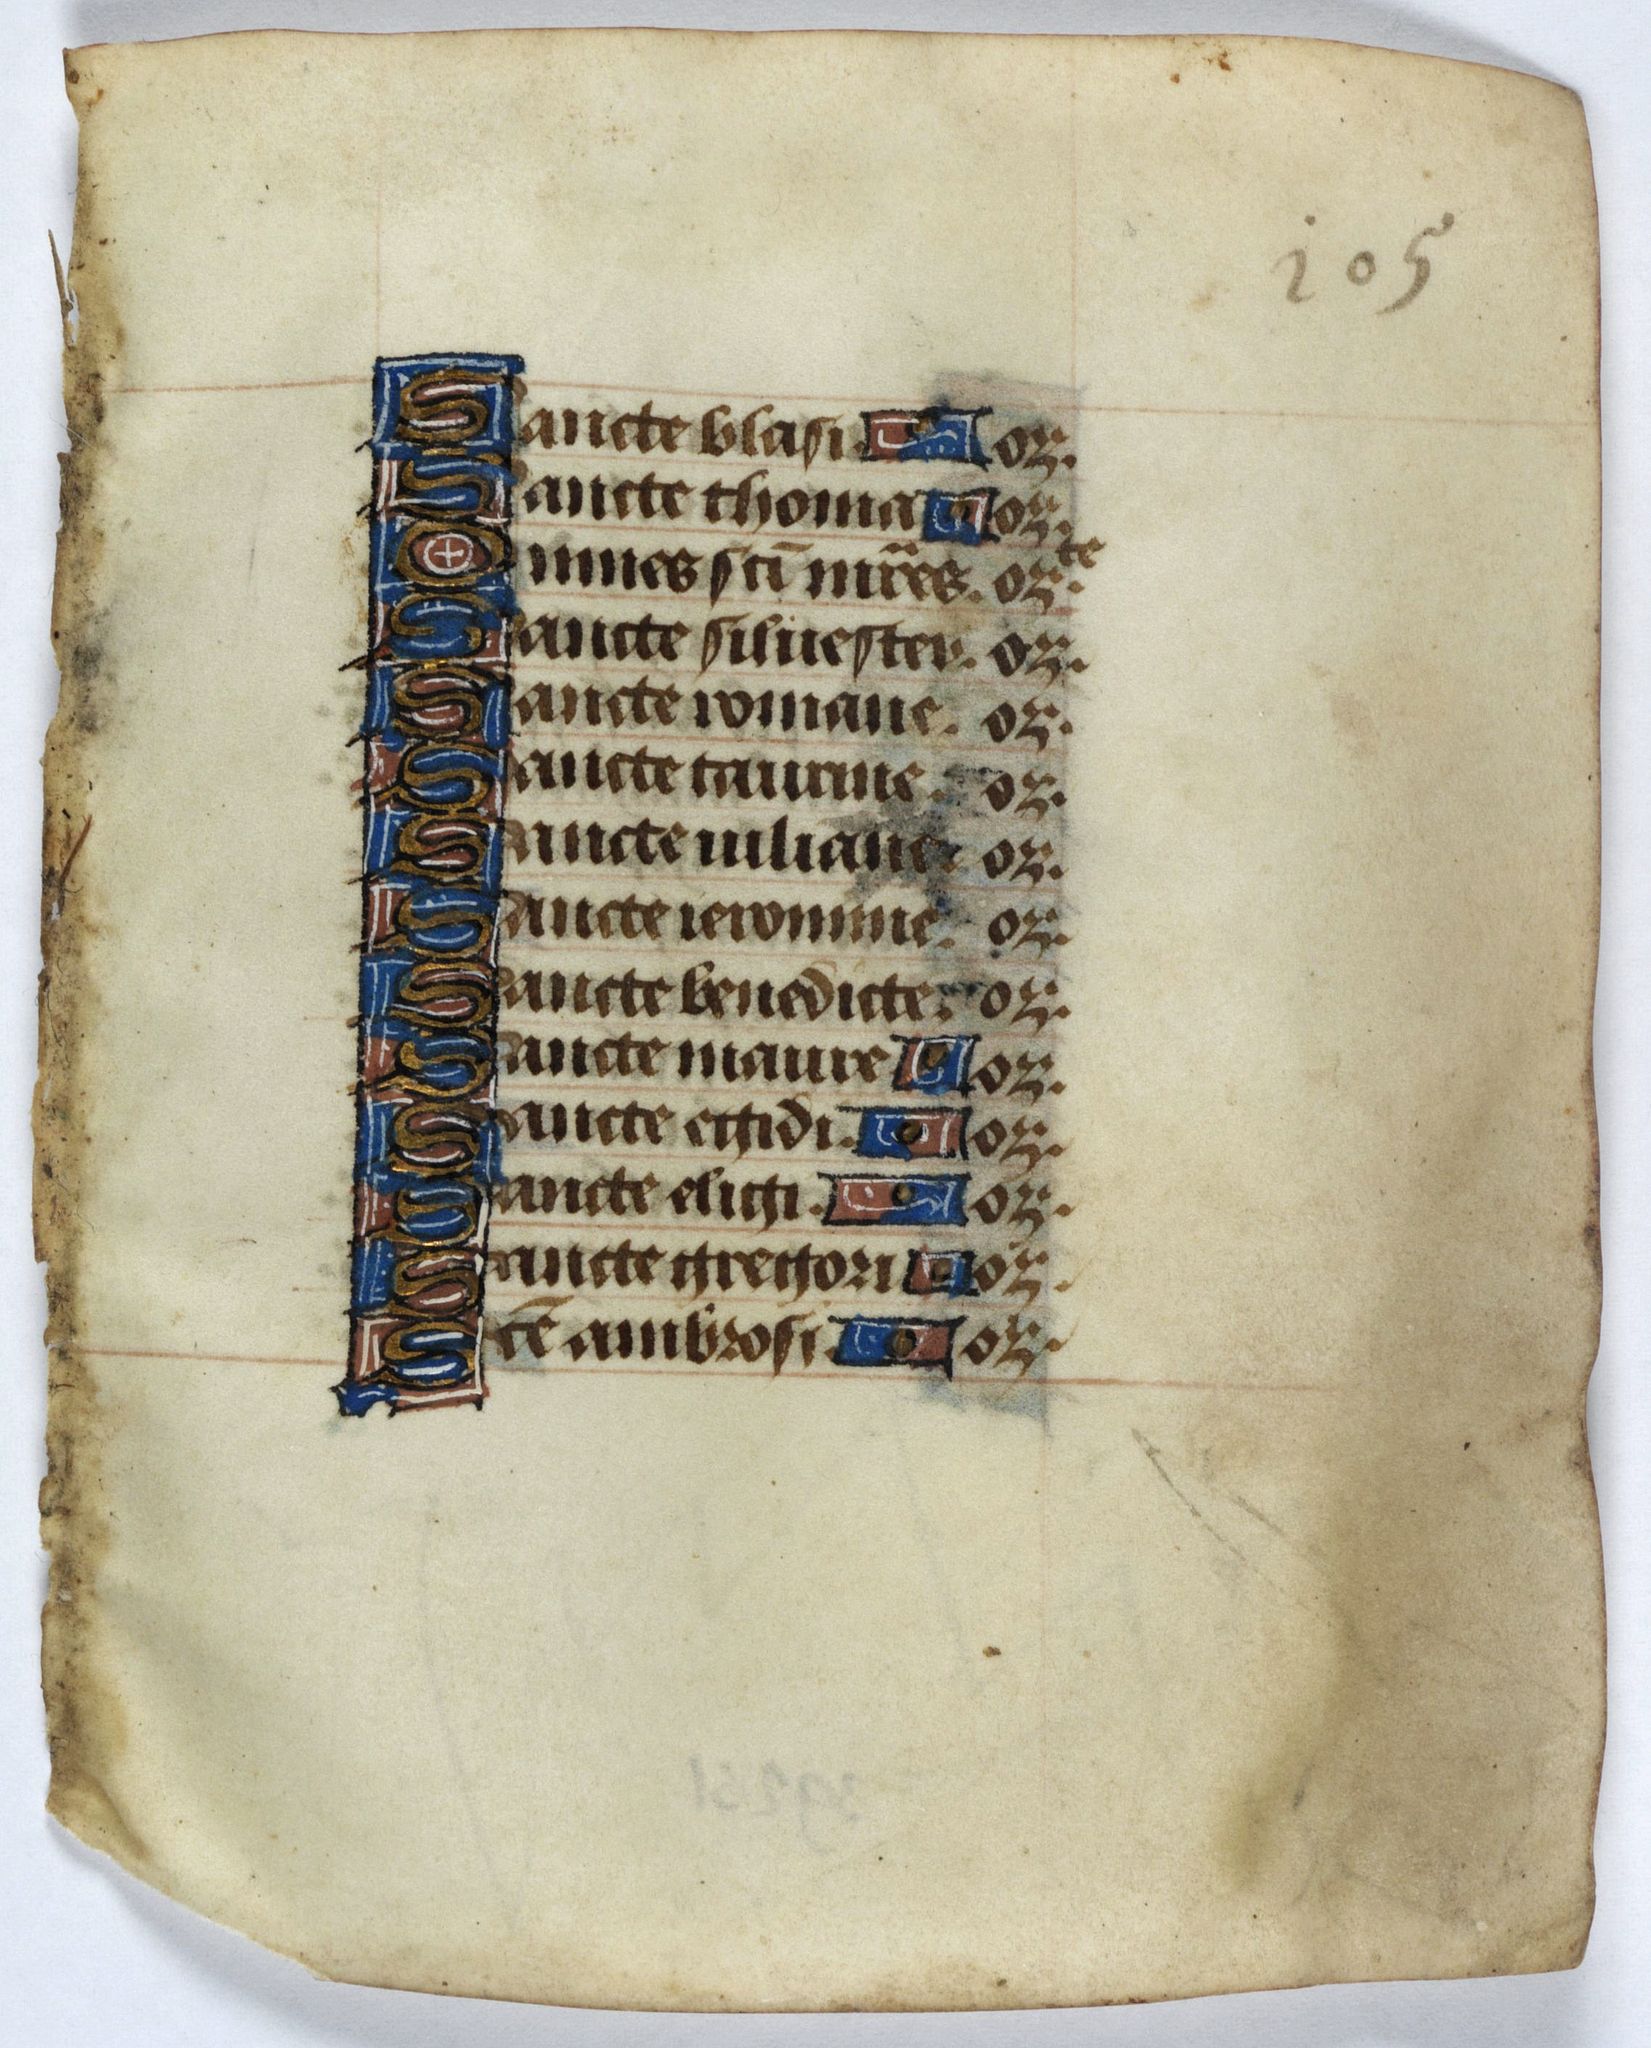 105
Sancte blasi. or.
Sancte thoma or.
Omnes sci mr̄es. or.te
Sancte siluester. or.
Sancte romane. or.
Sancte taurine. or.
Sancte iuliane. or.
Sancte ieronime. or.
Sancte benedicte. or.
Sancte maure or.
Sancte egidi. or.
Sancte eligi. or.
Sancte gregori or.
Scē ambrosi. or.